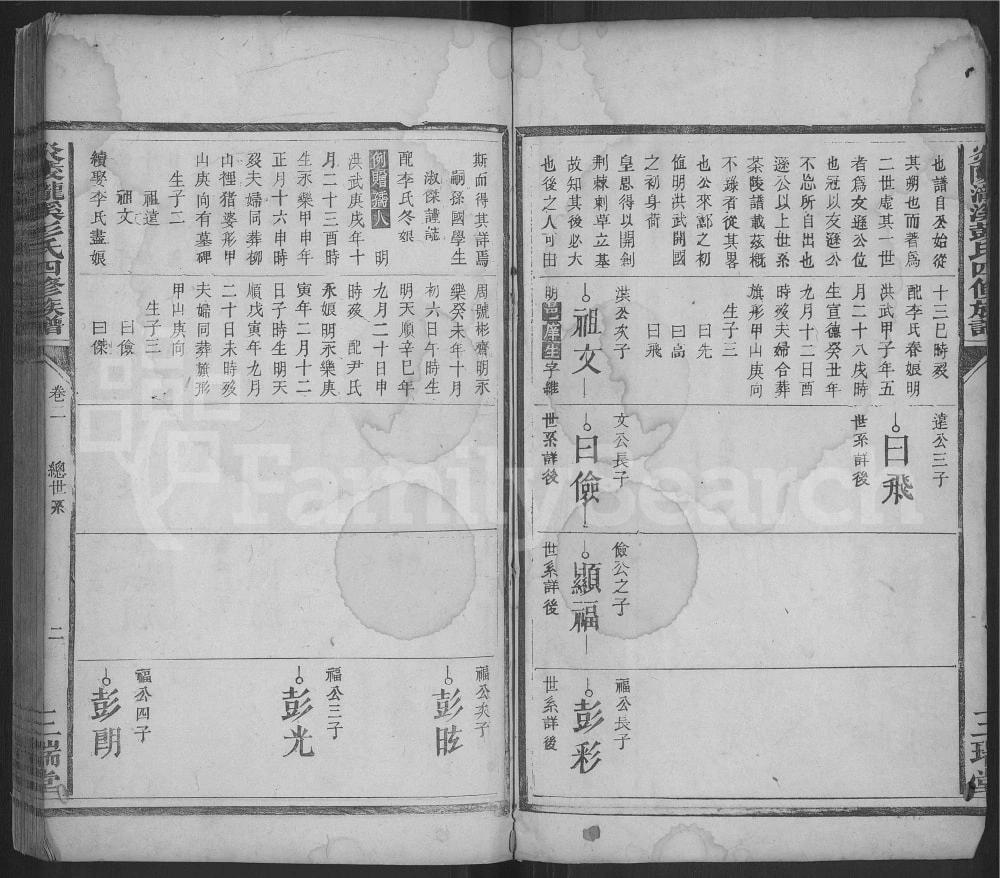 也譜自公始從
其朔也而著爲
二世虛其一世
者爲友遜公位
也冠以友遜公
不忘所自出也
遜公以上世系
茶陵譜載茲概
不錄者從其畧
也公來酃之初
值明洪武開國
之初身荷
皇恩得以開創
荆棘剌草立基
故知其後必大
也後之人可由
十三巳時歿
配李氏春娘明
洪武甲子年五
月二十八戌時
生宣德癸丑年
九月十二日酉
時歿夫婦合葬
旗形甲山庚向
生子三
曰先
曰高
曰飛
洪公次子
祖文
明邑庠生字維
達公三子
曰飛
世系詳後
文公長子
曰儉
世系詳後
儉公之子
顯福
世系詳後
福公長子
彭彩
世系詳後
三瑞堂
斯而得其詳焉
嗣孫國學生
淑傑謹誌
配李氏冬娘
例贈孺人 明
洪武庚戌年十
月二十三酉時
生永樂甲申年
正月十六申時
歿夫婦同葬柳
山裡猎婆形甲
山庚向有墓碑
生子二
祖達
祖文
續娶李氏盡娘
周號彬齋明永
樂癸未年十月
初六日午時生
明天順辛巳年
九月二十日申
時歿 配尹氏
永娘明永樂庚
寅年二月十二
日子時生明天
順戊寅年九月
二十日未時歿
夫婦同葬旗形
甲山庚向
生子三
曰儉
曰傑
福公次子
彭昡
福公三子
彭光
福公四子
彭朗
彭氏四修族譜
卷二
總世系
二
三瑞堂
FamilySearch